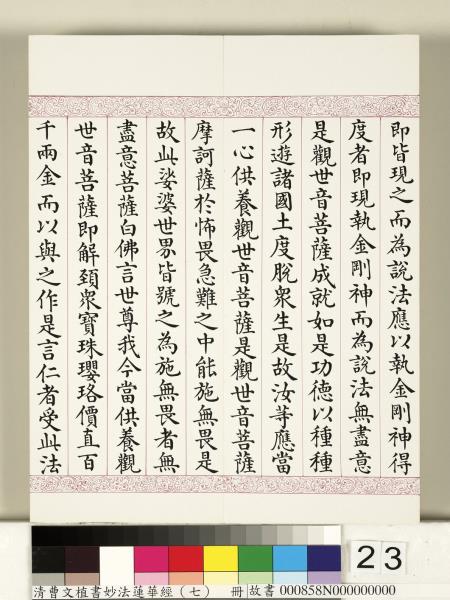 即皆現之而為說法應以執金剛神得
度者即現執金剛神而為說法無盡意
是觀世音菩薩成就如是功德以種種
形遊諸國土度脫眾生是故汝等應當
一心供養觀世音菩薩是觀世音菩薩
摩訶薩於怖畏急難之中能施無畏是
故此娑婆世界皆號之為施無畏者無
盡意菩薩白佛言世尊我今當供養觀
世音菩薩即解頸眾寶珠瓔珞價直百
千兩金而以與之作是言仁者受此法
23
清曹文植書妙法蓮華經（七） 冊 故書 000858N000000000